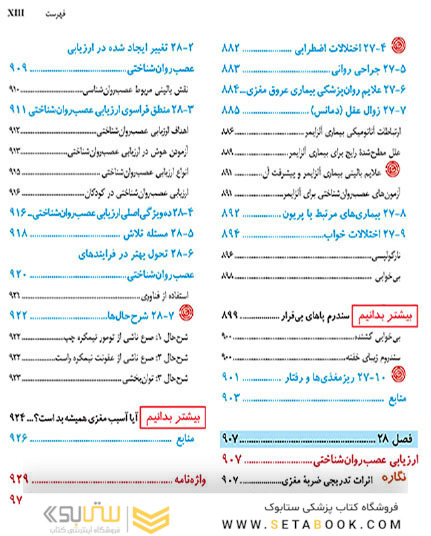 فهرست XIII
۲۷-۴ اختلالات اضطرابی ۸۸۲
۲۷-۵ جراحی روانی ۸۸۳
۲۷-۶ علایم روان‌پزشکی بیماری عروق مغزی ۸۸۴
۲۷-۷ زوال عقل (دمانس) ۸۸۵
ارتباطات آناتومیکی بیماری آلزایمر ۸۸۶
علل مطرح‌شدهٔ رایج برای بیماری آلزایمر ۸۸۹
علایم بالینی بیماری آلزایمر و پیشرفت آن ۸۹۱
آزمون‌های عصب‌روان‌شناختی برای آلزایمر ۸۹۱
۲۷-۸ بیماری‌های مرتبط با پریون ۸۹۲
۲۷-۹ اختلالات خواب ۸۹۴
نارکولپسی ۸۹۶
بی‌خوابی ۸۹۸
بیشتر بدانیم سندرم پاهای بی‌قرار ۸۹۹
بی‌خوابی کشنده ۹۰۰
سندروم زیبای خفته ۹۰۰
۲۷-۱۰ ریزمغذی‌ها و رفتار ۹۰۱
منابع ۹۰۳
فصل ۲۸ ۹۰۷
ارزیابی عصب‌روان‌شناختی ۹۰۷
نگاره اثرات تدریجی ضربهٔ مغزی ۹۰۷
۲۸-۲ تغییر ایجاد شده در ارزیابی
عصب‌روان‌شناختی ۹۰۹
نقش بالینی مربوط عصب‌روان‌شناسی ۹۱۰
۲۸-۳ منطق فراسوی ارزیابی عصب‌روان‌شناختی ۹۱۱
اهداف ارزیابی عصب‌روان‌شناختی ۹۱۲
آزمودن هوش در ارزیابی عصب‌روان‌شناختی ۹۱۳
انواع ارزیابی عصب‌روان‌شناختی ۹۱۵
ارزیابی عصب‌روان‌شناختی در کودکان ۹۱۶
۲۸-۴ ده ویژگی اصلی ارزیابی عصب‌روان‌شناختی ۹۱۶
۲۸-۵ مسئله تلاش ۹۱۸
۲۸-۶ تحول بهتر در فرایندهای
عصب‌روان‌شناختی ۹۲۰
استفاده از فناوری ۹۲۱
۲۸-۷ شرح‌حال‌ها ۹۲۲
شرح‌حال ۱: صرع ناشی از تومور نیمکره چپ ۹۲۲
شرح‌حال ۲: صرع ناشی از عفونت نیمکره راست ۹۲۲
شرح‌حال ۳: توان‌بخشی ۹۲۳
بیشتر بدانیم آیا آسیب مغزی همیشه بد است؟ ۹۲۴
منابع ۹۲۶
واژه‌نامه ۹۲۹
۹۷
فروشگاه کتاب پزشکی ستابوک
WWW.SETABOOK.COM
ستابوک
فروشگاه اینترنتی کتاب